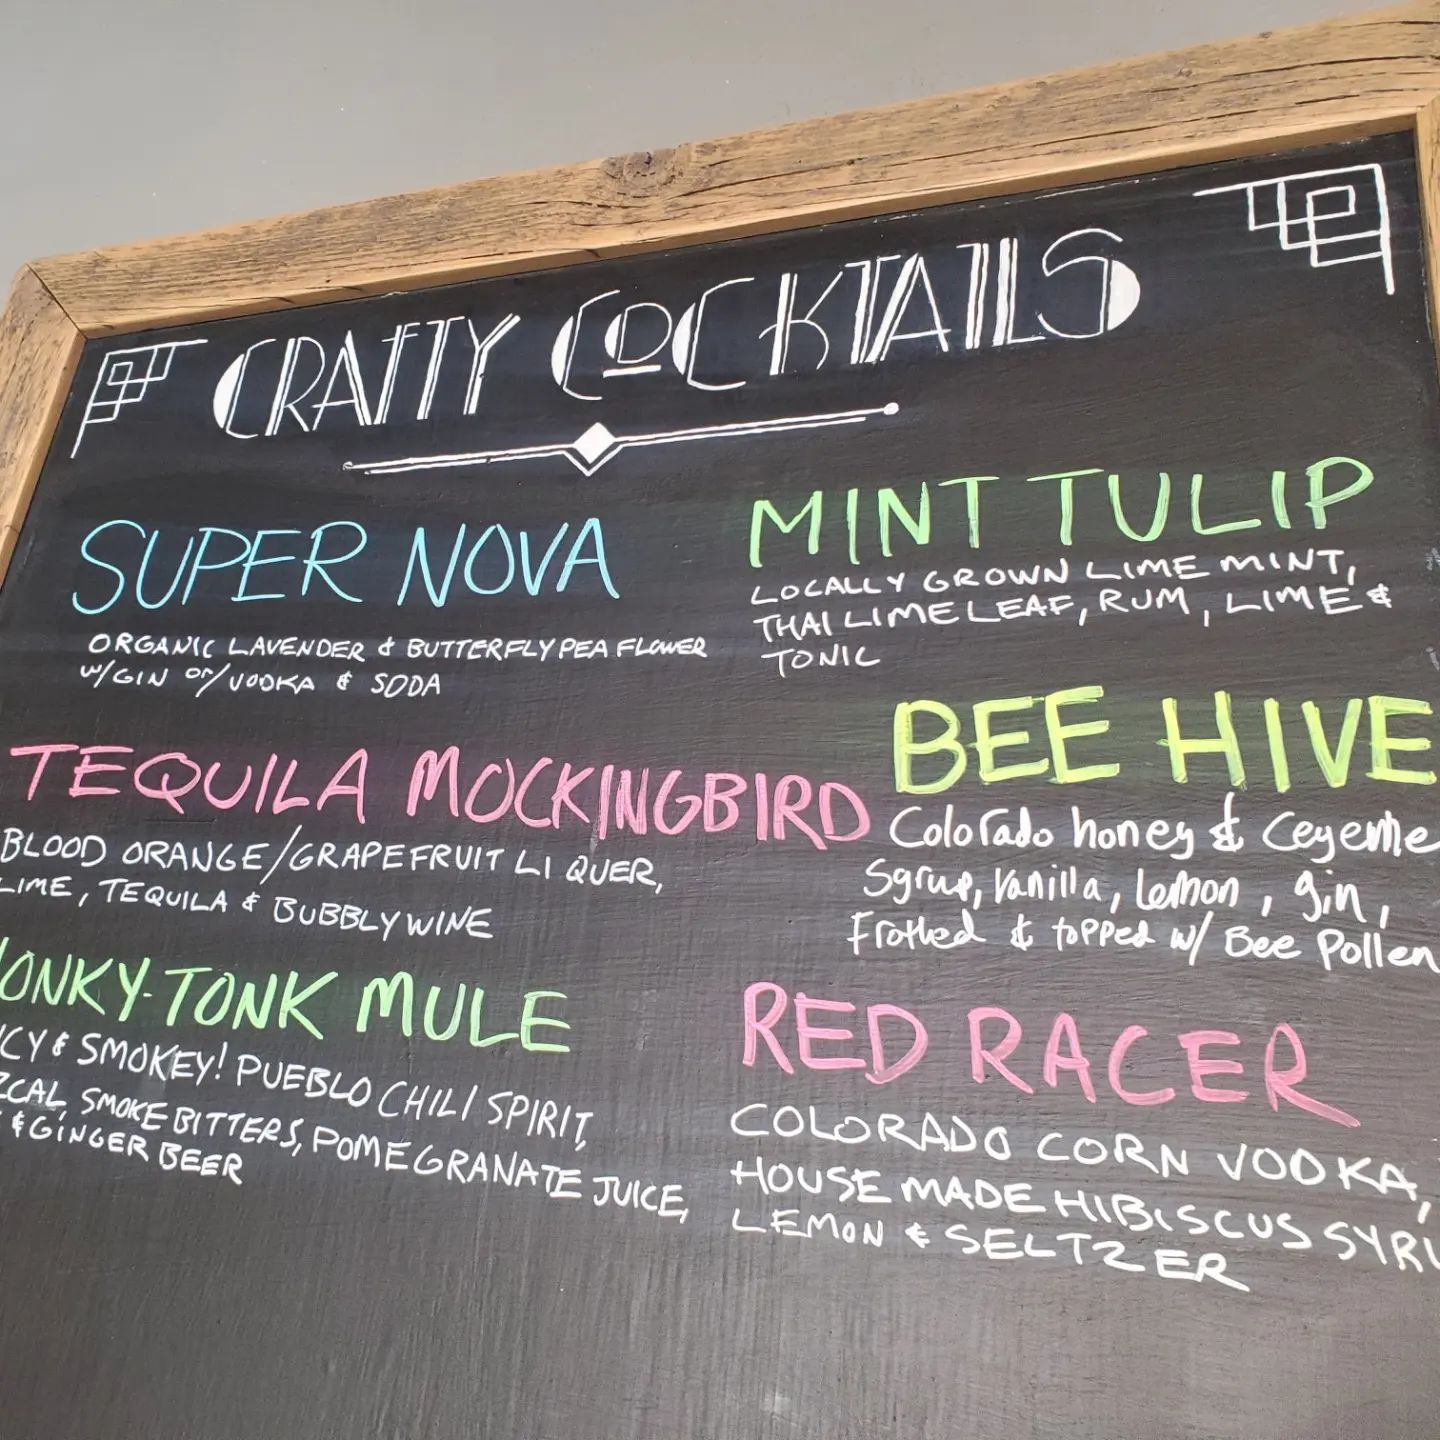 CRAFTY COCKTAILS
SUPER NOVA
ORGANIC LAVENDER & BUTTERFLY PEA FLOWER
W/GIN or/VODKA & SODA
TEQUILA MOCKINGBIRD
BLOOD ORANGE/GRAPEFRUIT LI QUER,
LIME, TEQUILA & BUBBLY WINE
HONKY-TONK MULE
& SMOKEY! PUEBLO CHILI SPIRIT,
SMOKE BITTERS, POMEGRANATE JUICE,
& GINGER BEER
MINT TULIP
LOCALLY GROWN LIME MINT,
THAI LIME LEAF, RUM, LIME &
TONIC
BEE HIVE
Colorado honey & Ceyenne
Syrup, Vanilla, Lemon, gin,
Frothed & topped w/ Bee Pollen
RED RACER
COLORADO CORN VODKA,
HOUSE MADE HIBISCUS SYRU
LEMON & SELTZER